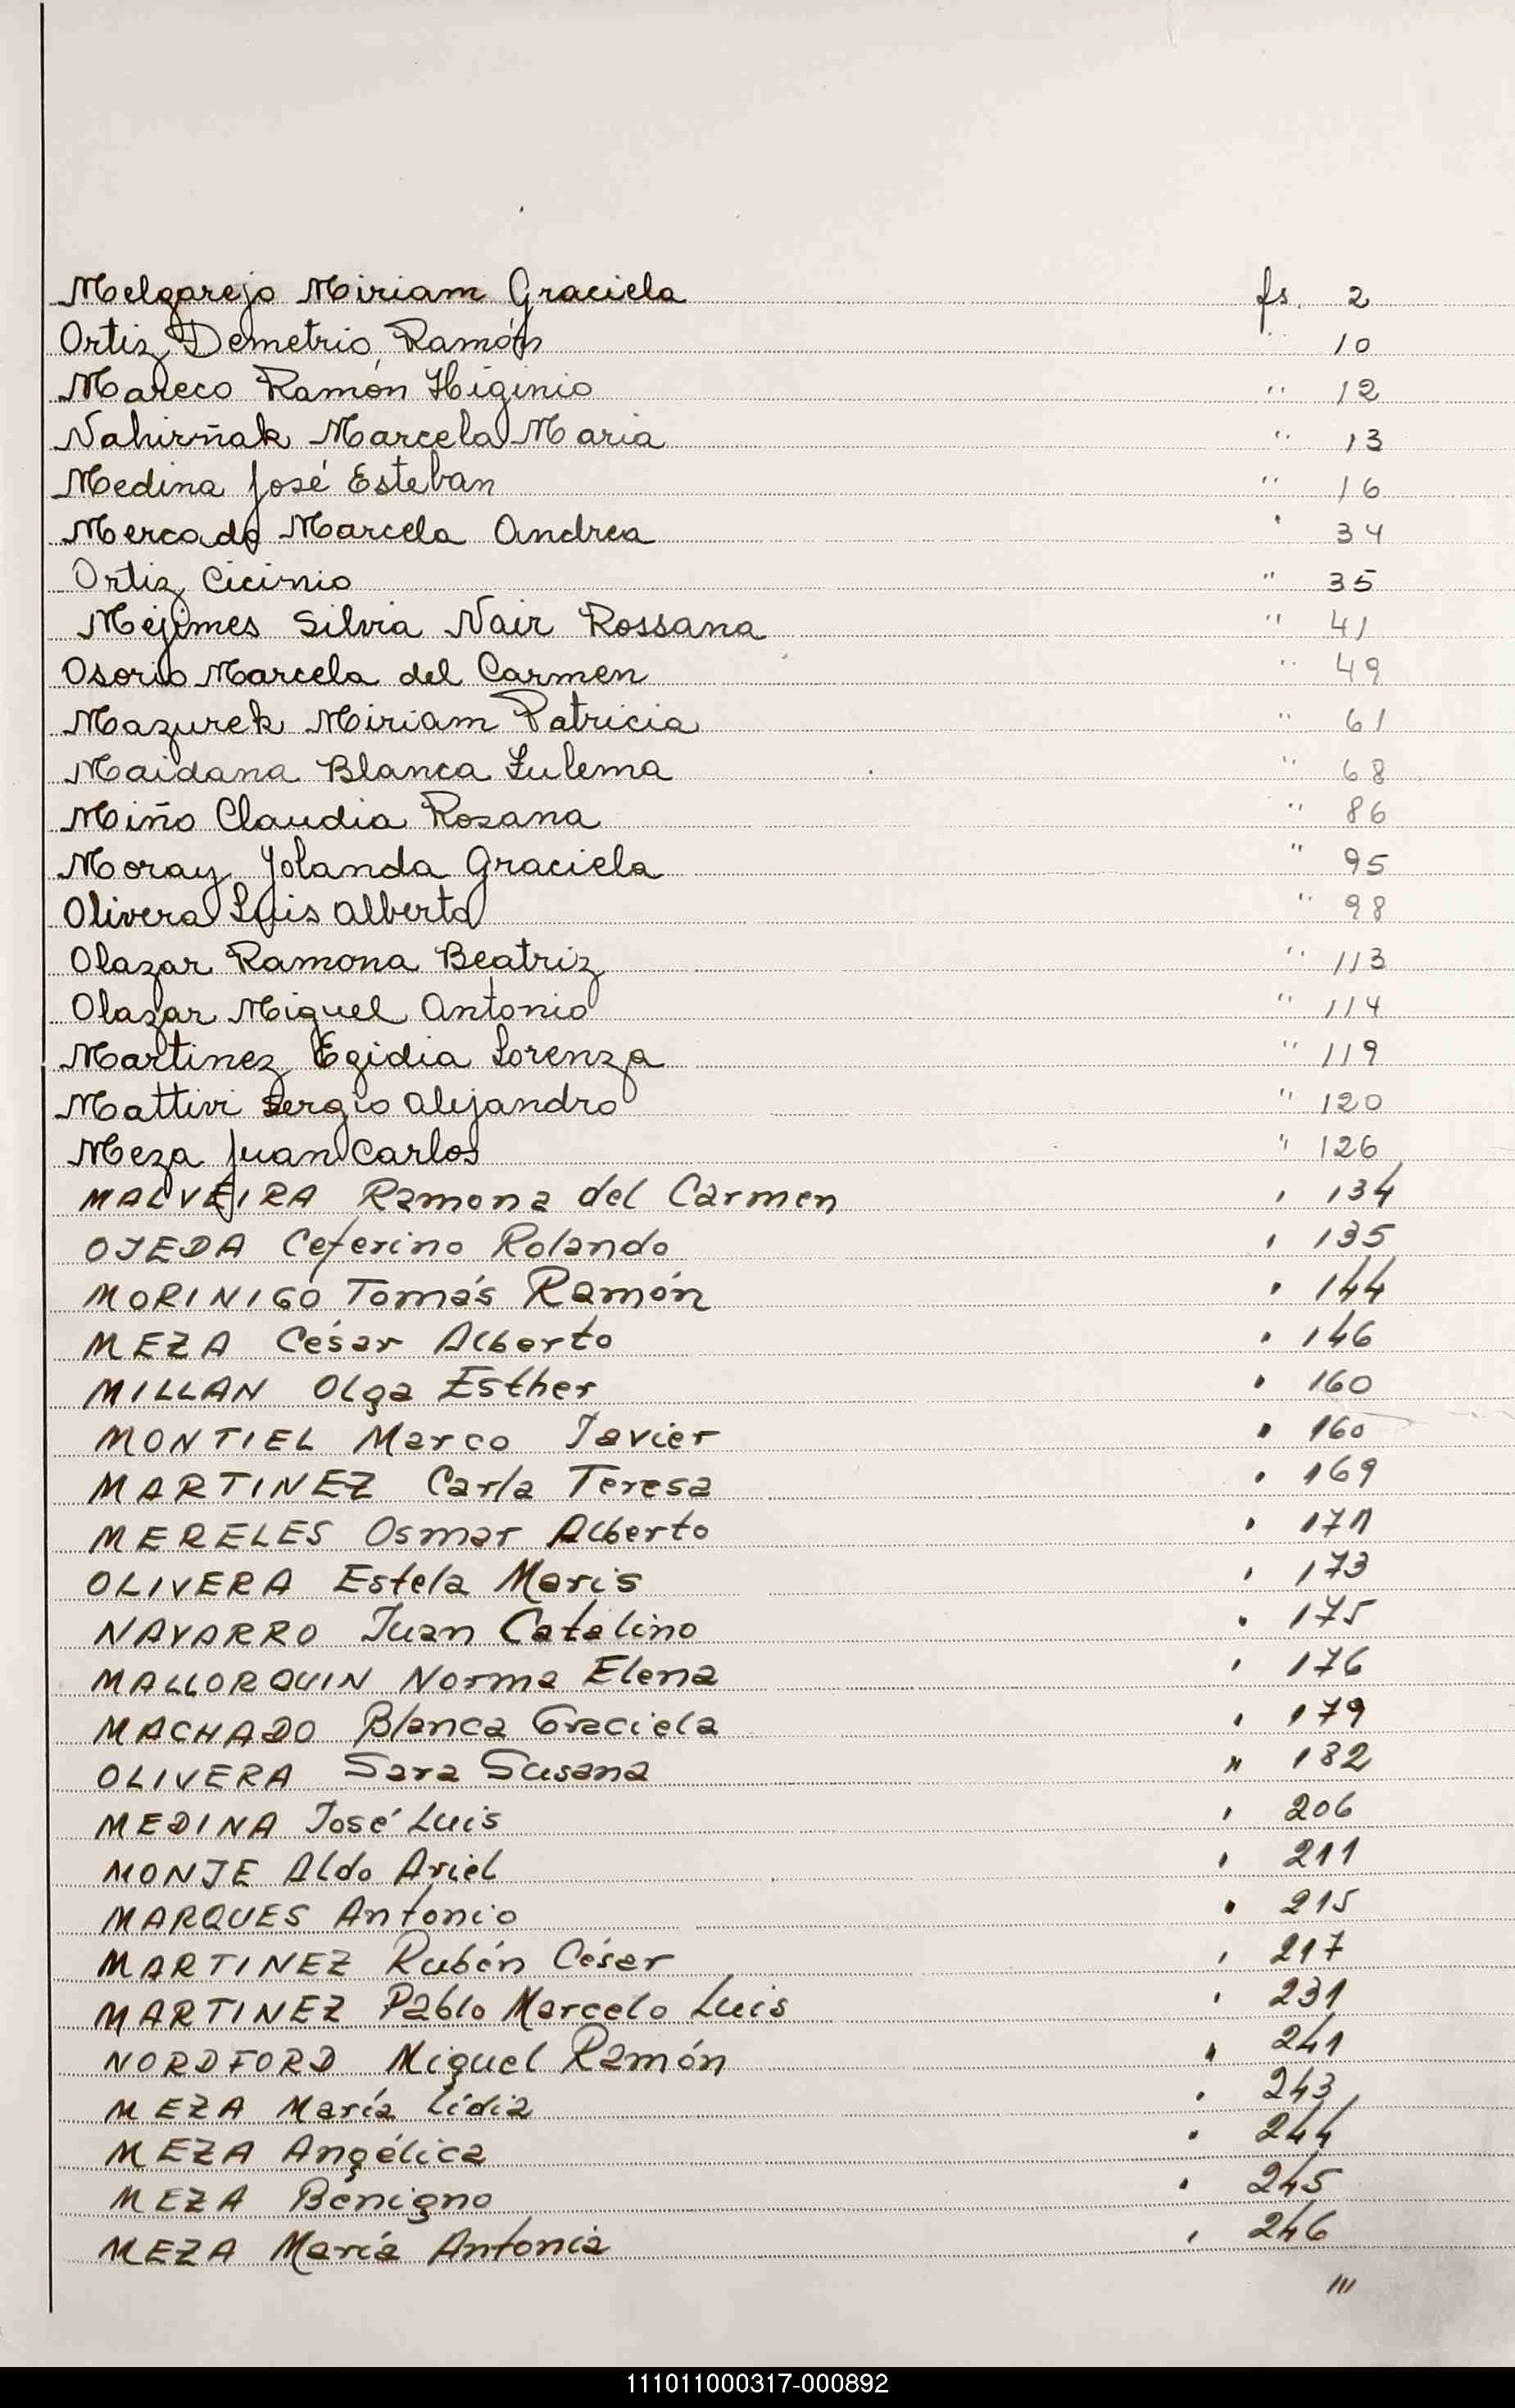 Melgarejo Miriam Graciela fs. 2
Ortiz Demetrio Ramón " 10
Mareco Ramón Higinio " 12
Nahirñak Marcela Maria " 13
Medina José Esteban " 16
Mercado Marcela Andrea " 34
Ortiz Cicinio " 35
Mejimes Silvia Nair Rossana " 41
Osorio Marcela del Carmen " 49
Mazurek Miriam Patricia " 61
Maidana Blanca Zulema " 68
Miño Claudia Rosana " 86
Moray Yolanda Graciela " 95
Olivera Luis Alberto " 98
Olazar Ramona Beatriz " 113
Olazar Miguel Antonio " 114
Martinez Egidia Lorenza " 119
Mattivi Sergio Alejandro " 120
Meza Juan Carlos " 126
MALVEIRA Ramona del Carmen " 134
OJEDA Ceferino Rolando " 135
MORINIGO Tomás Ramón " 144
MEZA César Alberto " 146
MILLAN Olga Esther " 160
MONTIEL Marco Javier " 160
MARTINEZ Carla Teresa " 169
MERELES Osmar Alberto " 171
OLIVERA Estela Maris " 173
NAVARRO Juan Catalino " 175
MALLORQUIN Norma Elena " 176
MACHADO Blanca Graciela " 179
OLIVERA Sara Susana " 182
MEDINA José Luis " 206
MONJE Aldo Ariel " 211
MARQUES Antonio " 215
MARTINEZ Rubén César " 217
MARTINEZ Pablo Marcelo Luis " 231
NORDFORD Miguel Ramón " 241
MEZA María Lidia " 243
MEZA Angélica " 244
MEZA Benigno " 245
MEZA María Antonia " 246
///
111011000317-000892